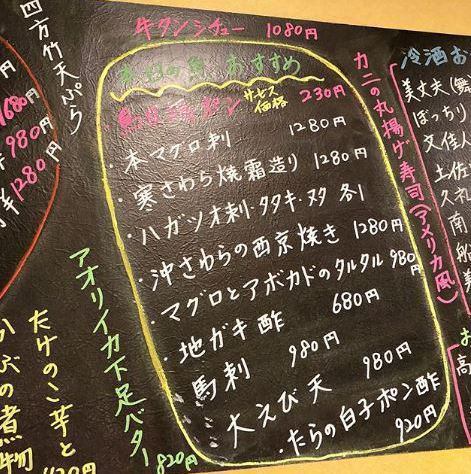 四方竹天ぷら
1680円
980円
1280円
牛タンシチュー 1080円
本日の おすすめ
サービス価格 230円
・本マグロ刺 1280円
・寒さわら焼霜造り 1280円
・ハガツオ刺・タタキ・ヌタ 各1
・沖さわらの西京焼き 1280円
・マグロとアボカドのタルタル 980円
・地ガキ酢 680円
馬刺 980円
大えび天 980円
・たらの白子ポン酢 920円
カニの丸揚げ寿司(アメリカ風)
アオリイカ下足バター 820円
たけのこ芋と
かぶの煮物
冷酒お
美丈夫(舞
ぼっちり
文佳人
土佐
久礼
南
船
お
高